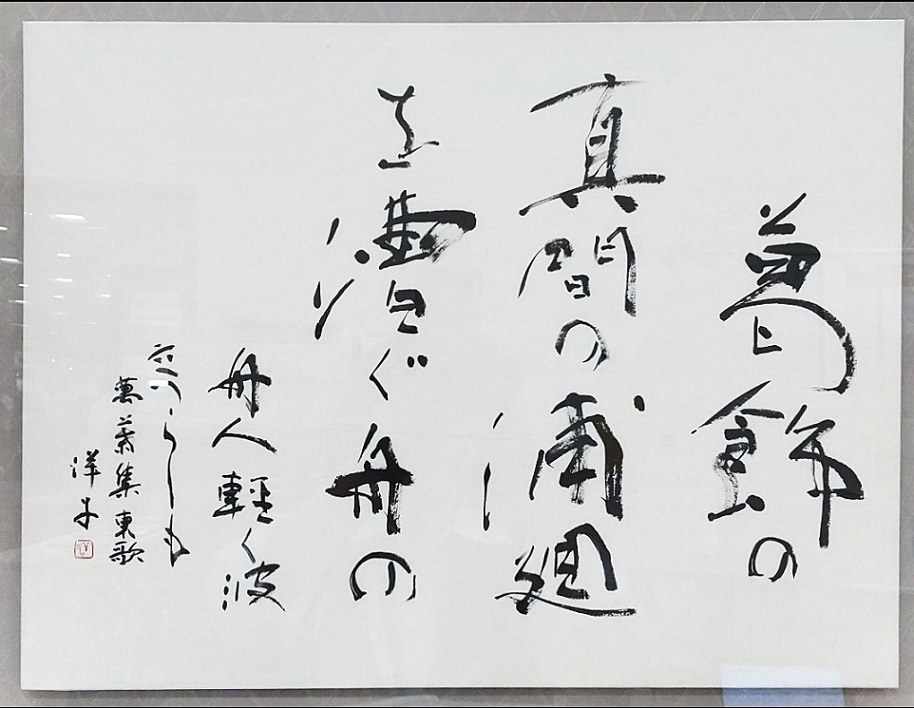 葛飾の
真間の浦廻
を漕ぐ舟の
舟人軽く波
立つらしも
萬葉集東歌
洋子